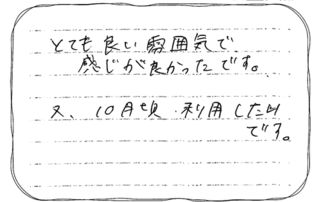 とても良い雰囲気で
感じが良かったです。
又、10月頃利用したい
です。